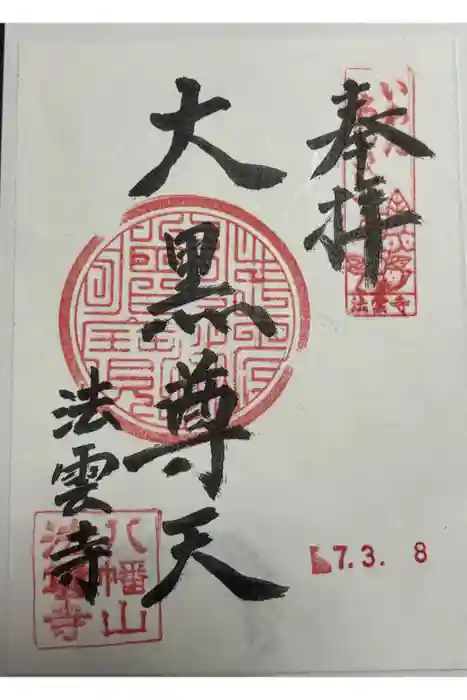 奉拝
法雲寺
大黒尊天
7.3.8
法雲寺
八幡山
法雲寺